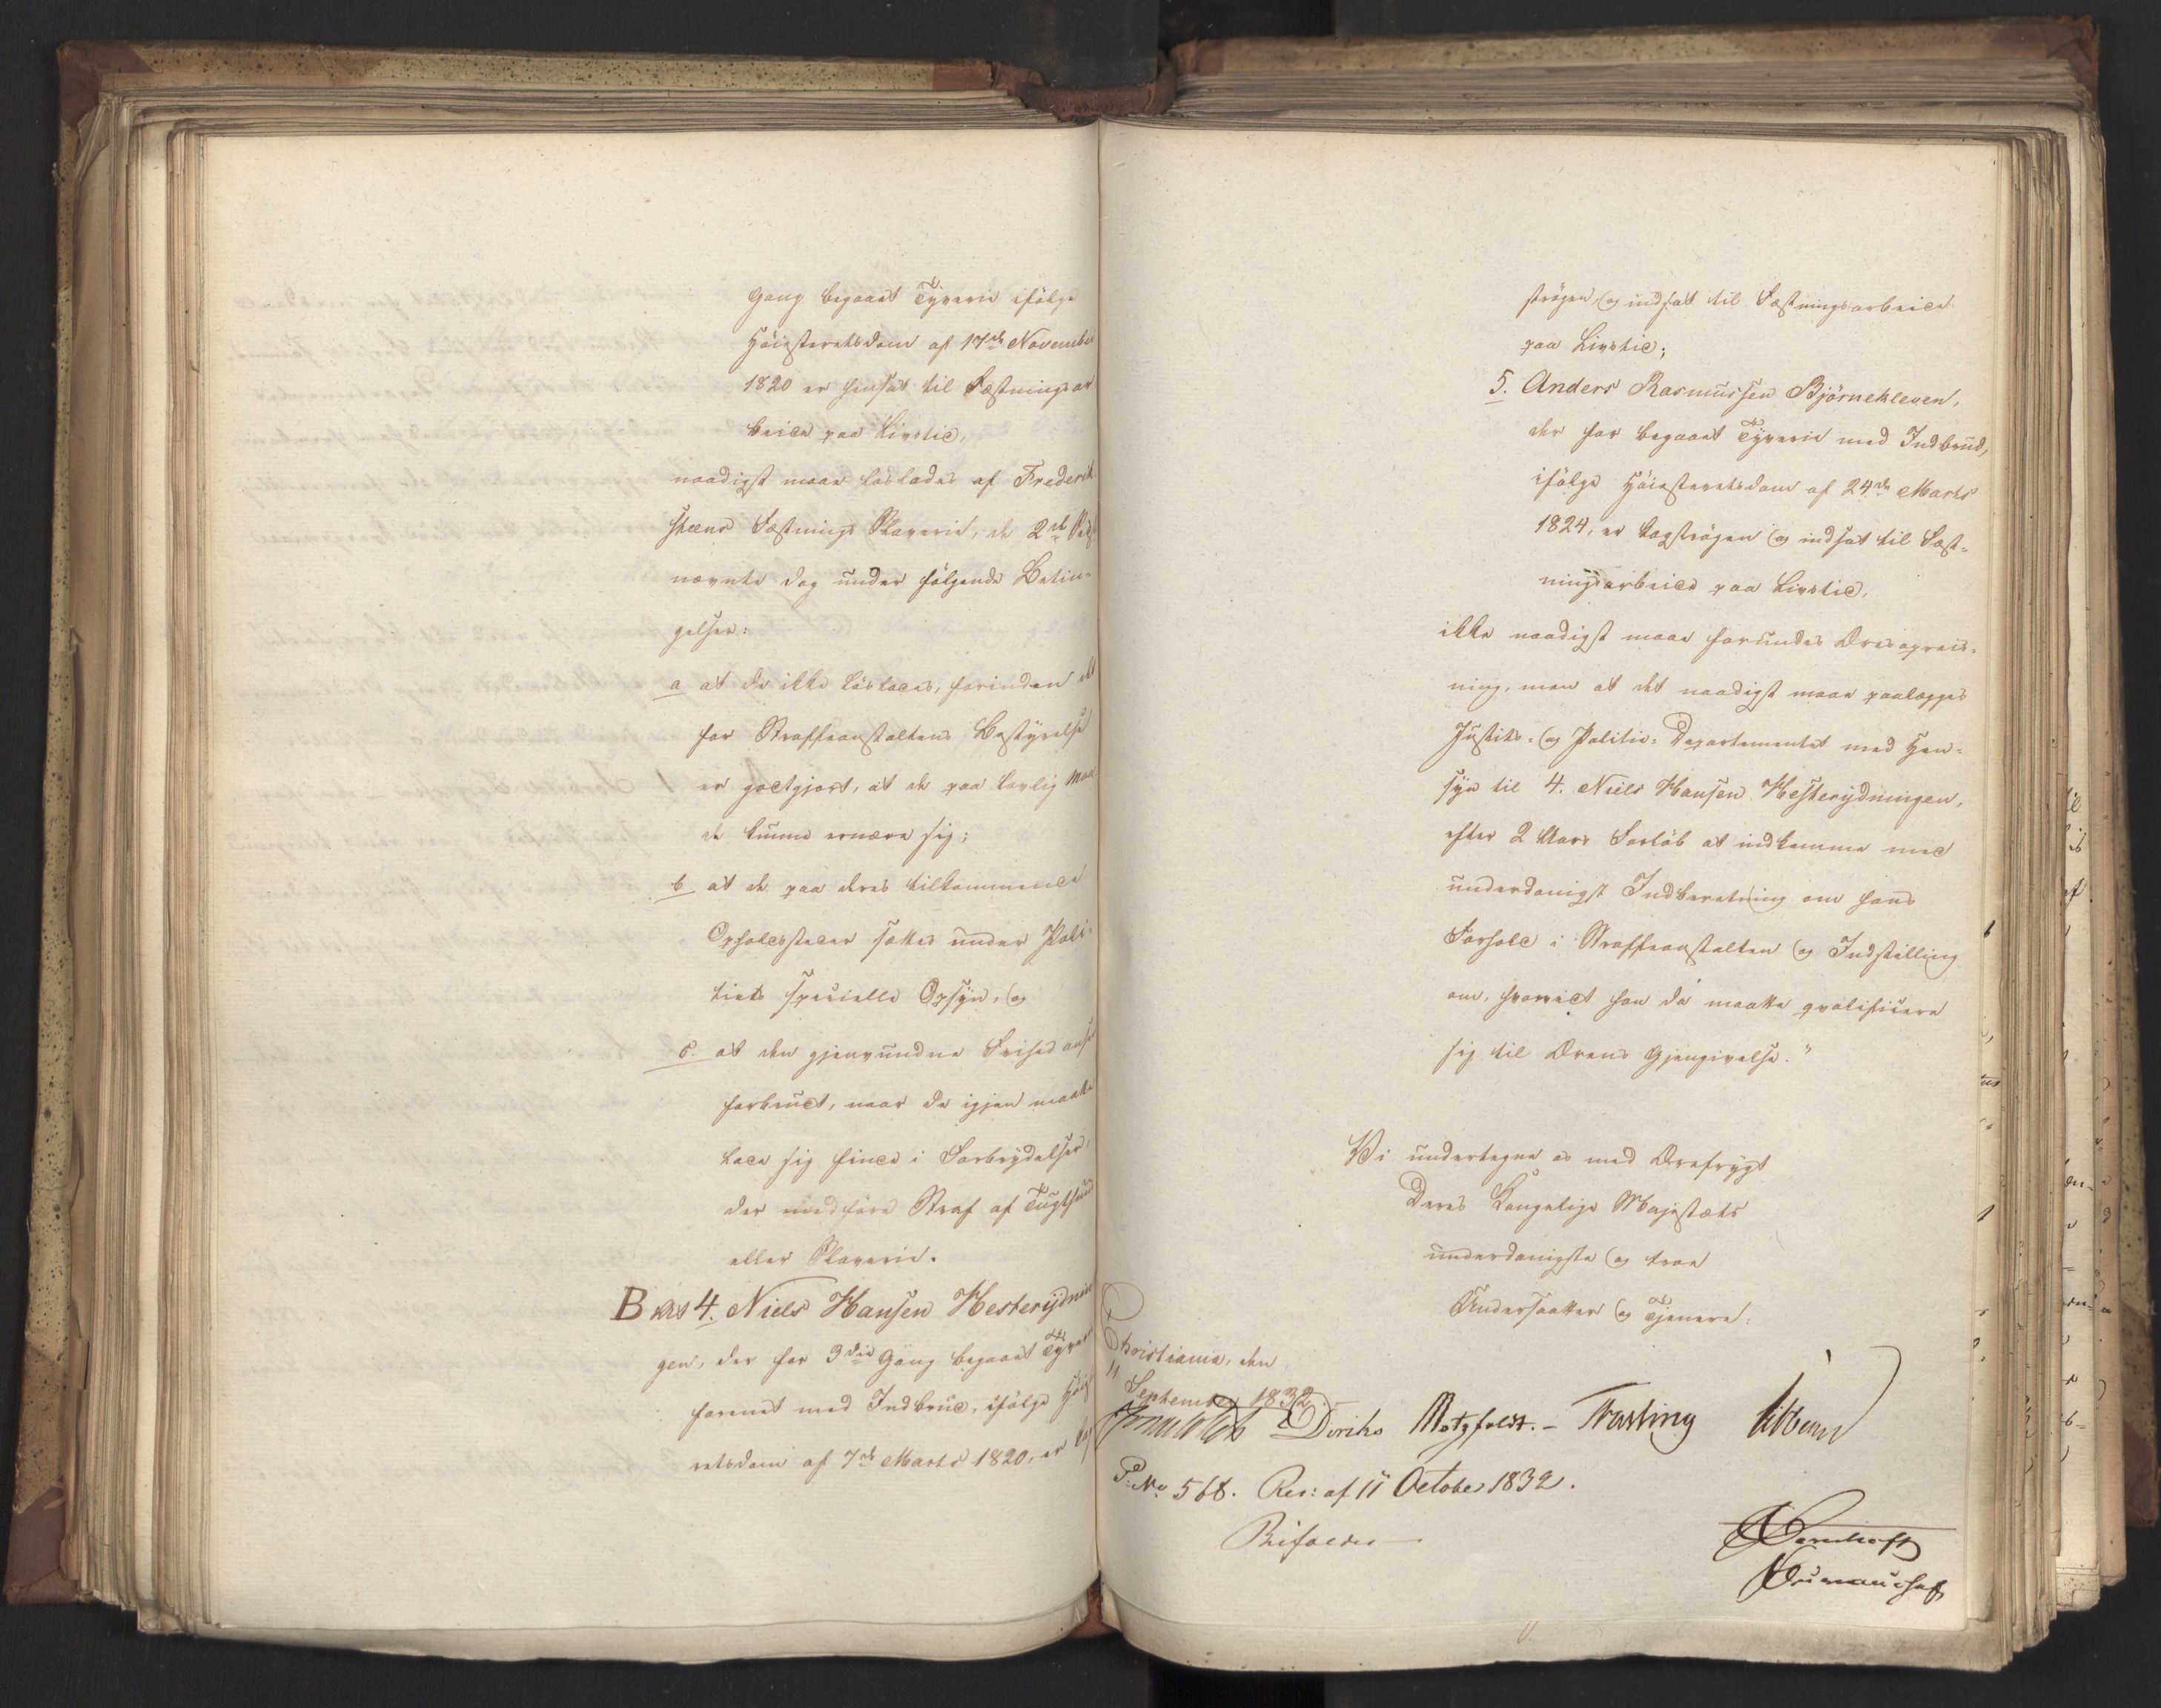 Gang begaaet Tyverie ifølge
Høiesteretsdom af 17de November
1820 er hensat til Fæstningsar
beide paa Livstid,
naadigst maae løslades af Frederik
steens Fæstnings Slaverie, de 2de Sidst
nævnte dog under følgende Betin-
gelser:
a at de ikke løslades, forinden det
for Straffeanstaltens Bestyrelse
er godtgjort, at de paa lovlig Maa
de kunne ernære sig;
b at de paa deres tilkommende
Opholdssteder sættes under Poli-
tiets specielle Opsyn, og
c. at den gjenvundne Frihed ansees
forbrudt, naar de igjen maatte
lade sig finde i Forbrydelser,
der medføre Straf af Tugthuus
eller Slaverie.
B at 4. Niels Hansen Hesterydnin
gen, der for 3die Gang begaaet Tyverie
forenet med Indbrud, ifølge Høieste
retsdom af 7de Marts 1820, er kag
strøgen og indsat til Fæstningsarbeide
paa Livstid;
5. Anders Rasmussen Björnekleven,
der for begaaet Tyverie med Indbrud,
ifølge Høiesteretsdom af 24de Marts
1824, er kagstrøgen og indsat til Fæst-
ningsarbeide paa Livstid,
ikke naadigst maae forundes Æresopreis-
ning, men at det naadigst maae paalægges
Justits- og Politie-Departementet med Hen-
syn til 4. Niels Hansen Hesterydningen,
efter 2 Aars Forløb at indkomme med
underdanigst Indberetning om hans
Forhold i Straffeanstalten og Indstilling
om, hvorvidt han da maatte qvalificere
sig til Ærens Gjengivelse."
Vi undertegne os med Ærefrygt
Deres Kongelige Majestæts
underdanigste og troe
Undersaatter og Tjenere.
Christiania, den
11 September 1832.
Diriks Motzfeldt. - Fasting
P: No 568. Res: af 11 October 1832.
Bifaldes